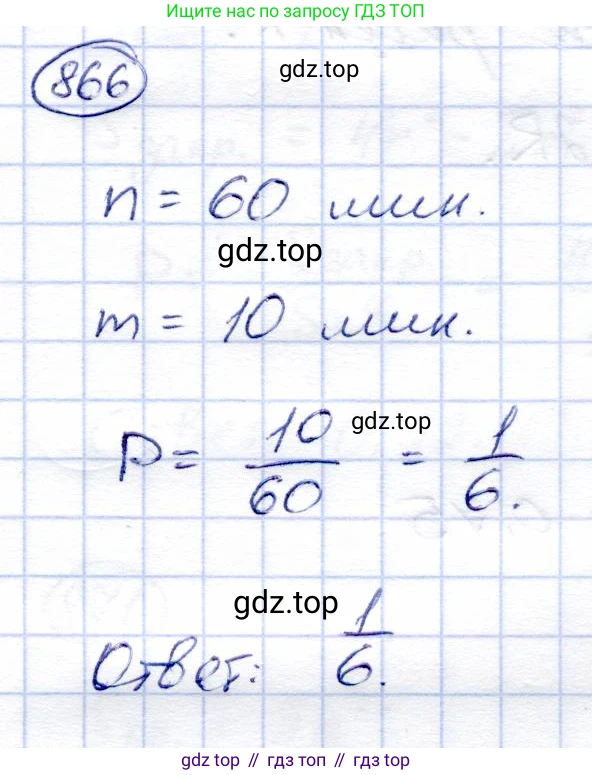 Ищите нас по запросу ГДЗ ТОП
866
gdz.top
n = 60 мин.
gdz.top
m = 10 мин.
gdz.top
P = 10/60 = 1/6.
gdz.top
Ответ: 1/6.
gdz.top // гдз топ // gdz top // гдз.топ